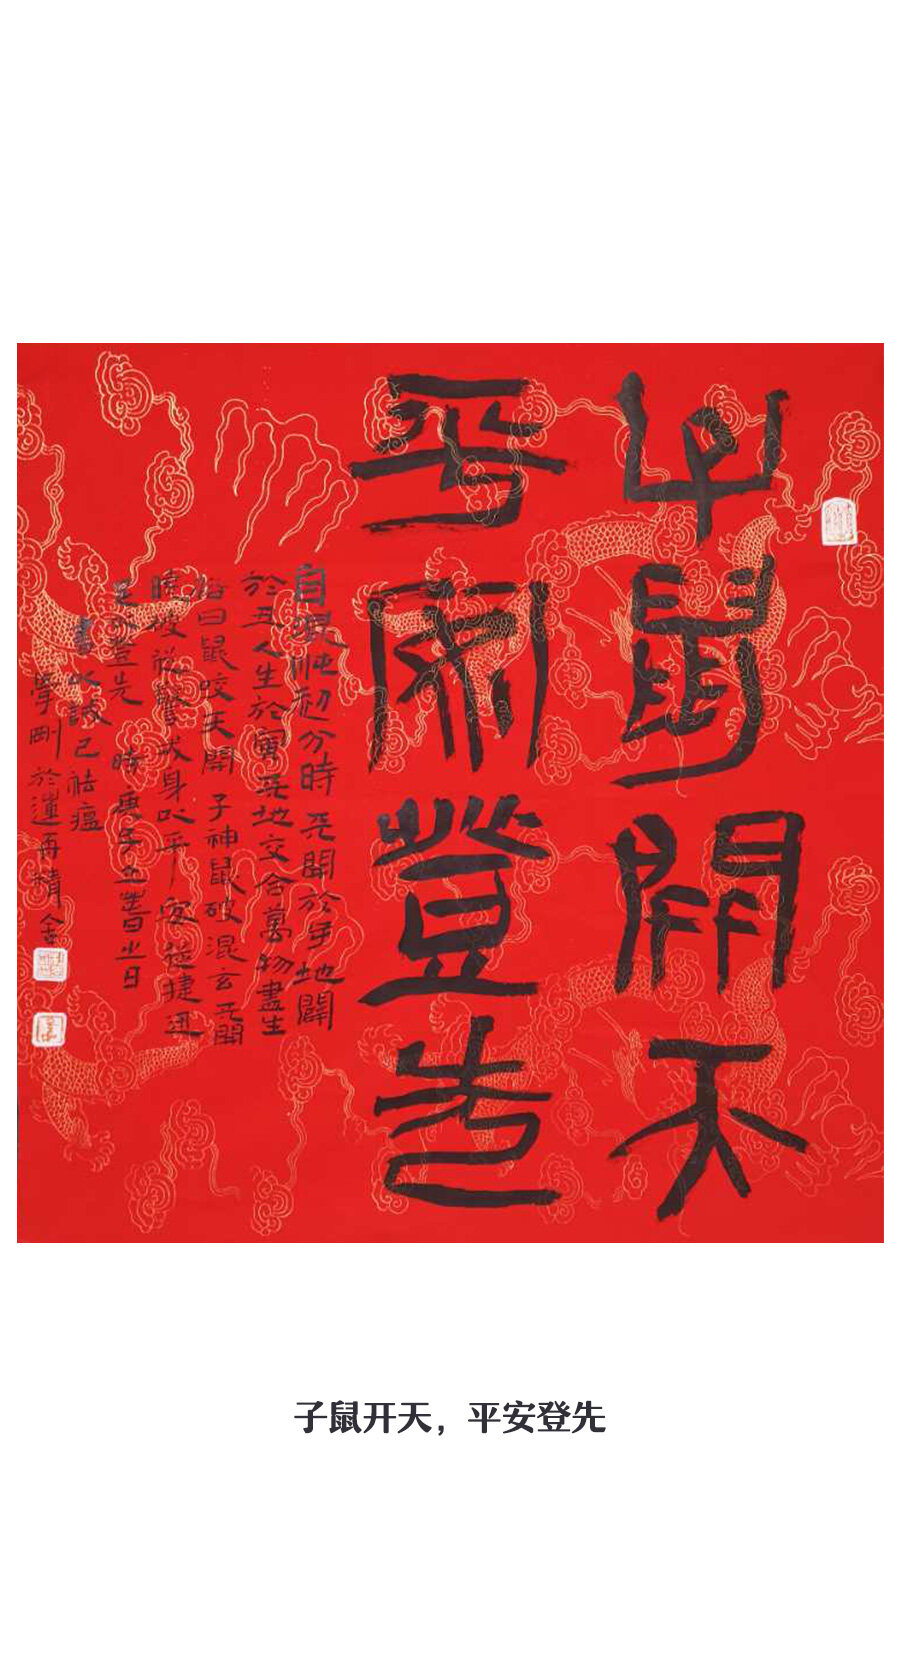 子鼠開天
平安登先
自混沌初分時天開於子地闢
於丑人生於寅天地交合萬物盡生
曰鼠咬天開子神鼠破混玄天開
身以平安從捷迅
足以登先 時庚子立春之日
書此誠己祛瘟
學剛於蓮再精舍
子鼠开天，平安登先